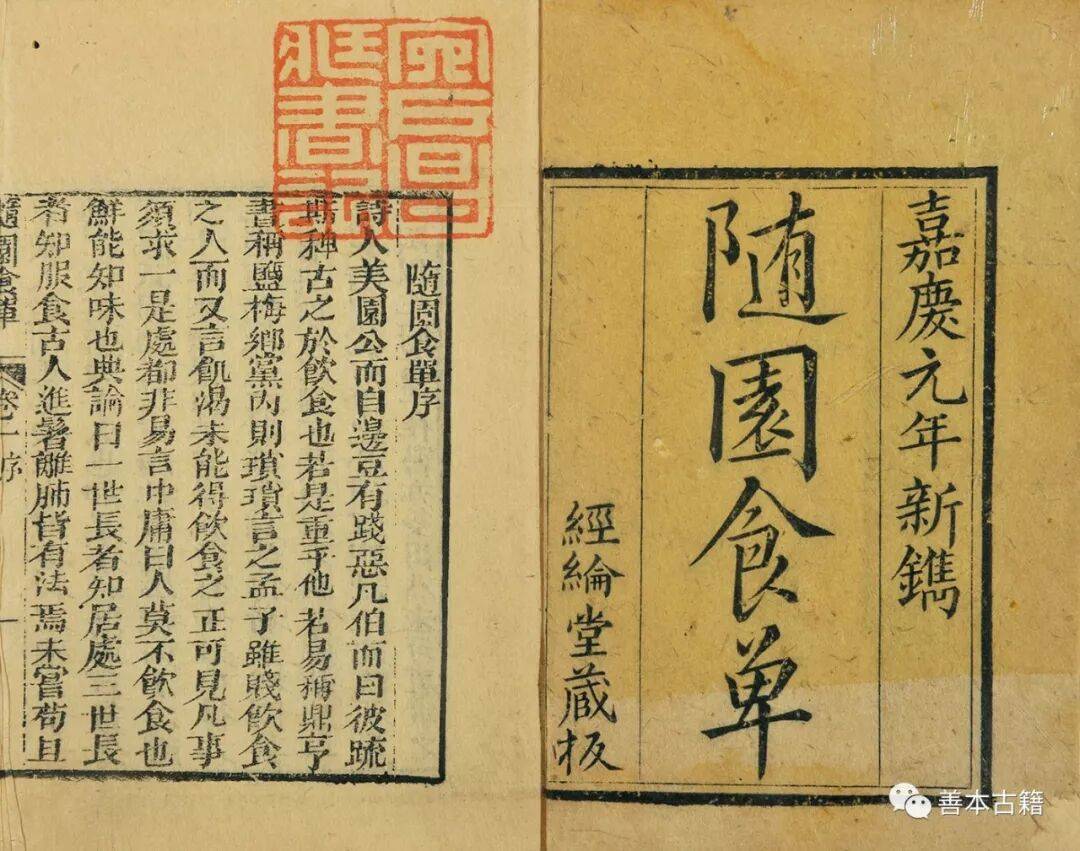 嘉慶元年新鐫
随園食单
經綸堂藏板
隨園食單序
詩人美園公而自邊豆有踐惡凡伯而曰彼疏
斯稗古之於飲食也若是重乎他若易稱鼎亨
書稱鹽梅鄉黨內則瑣瑣言之孟子雖賤飲食
之人而又言飢渴未能得飲食之正可見凡事
須求一是處都非易言中庸曰人莫不飲食也
鮮能知味也典論曰一世長者知居處三世長
者知服食古人進鬐離肺皆有法焉未嘗苟且
隨園食單 卷一 序 一
善本古籍